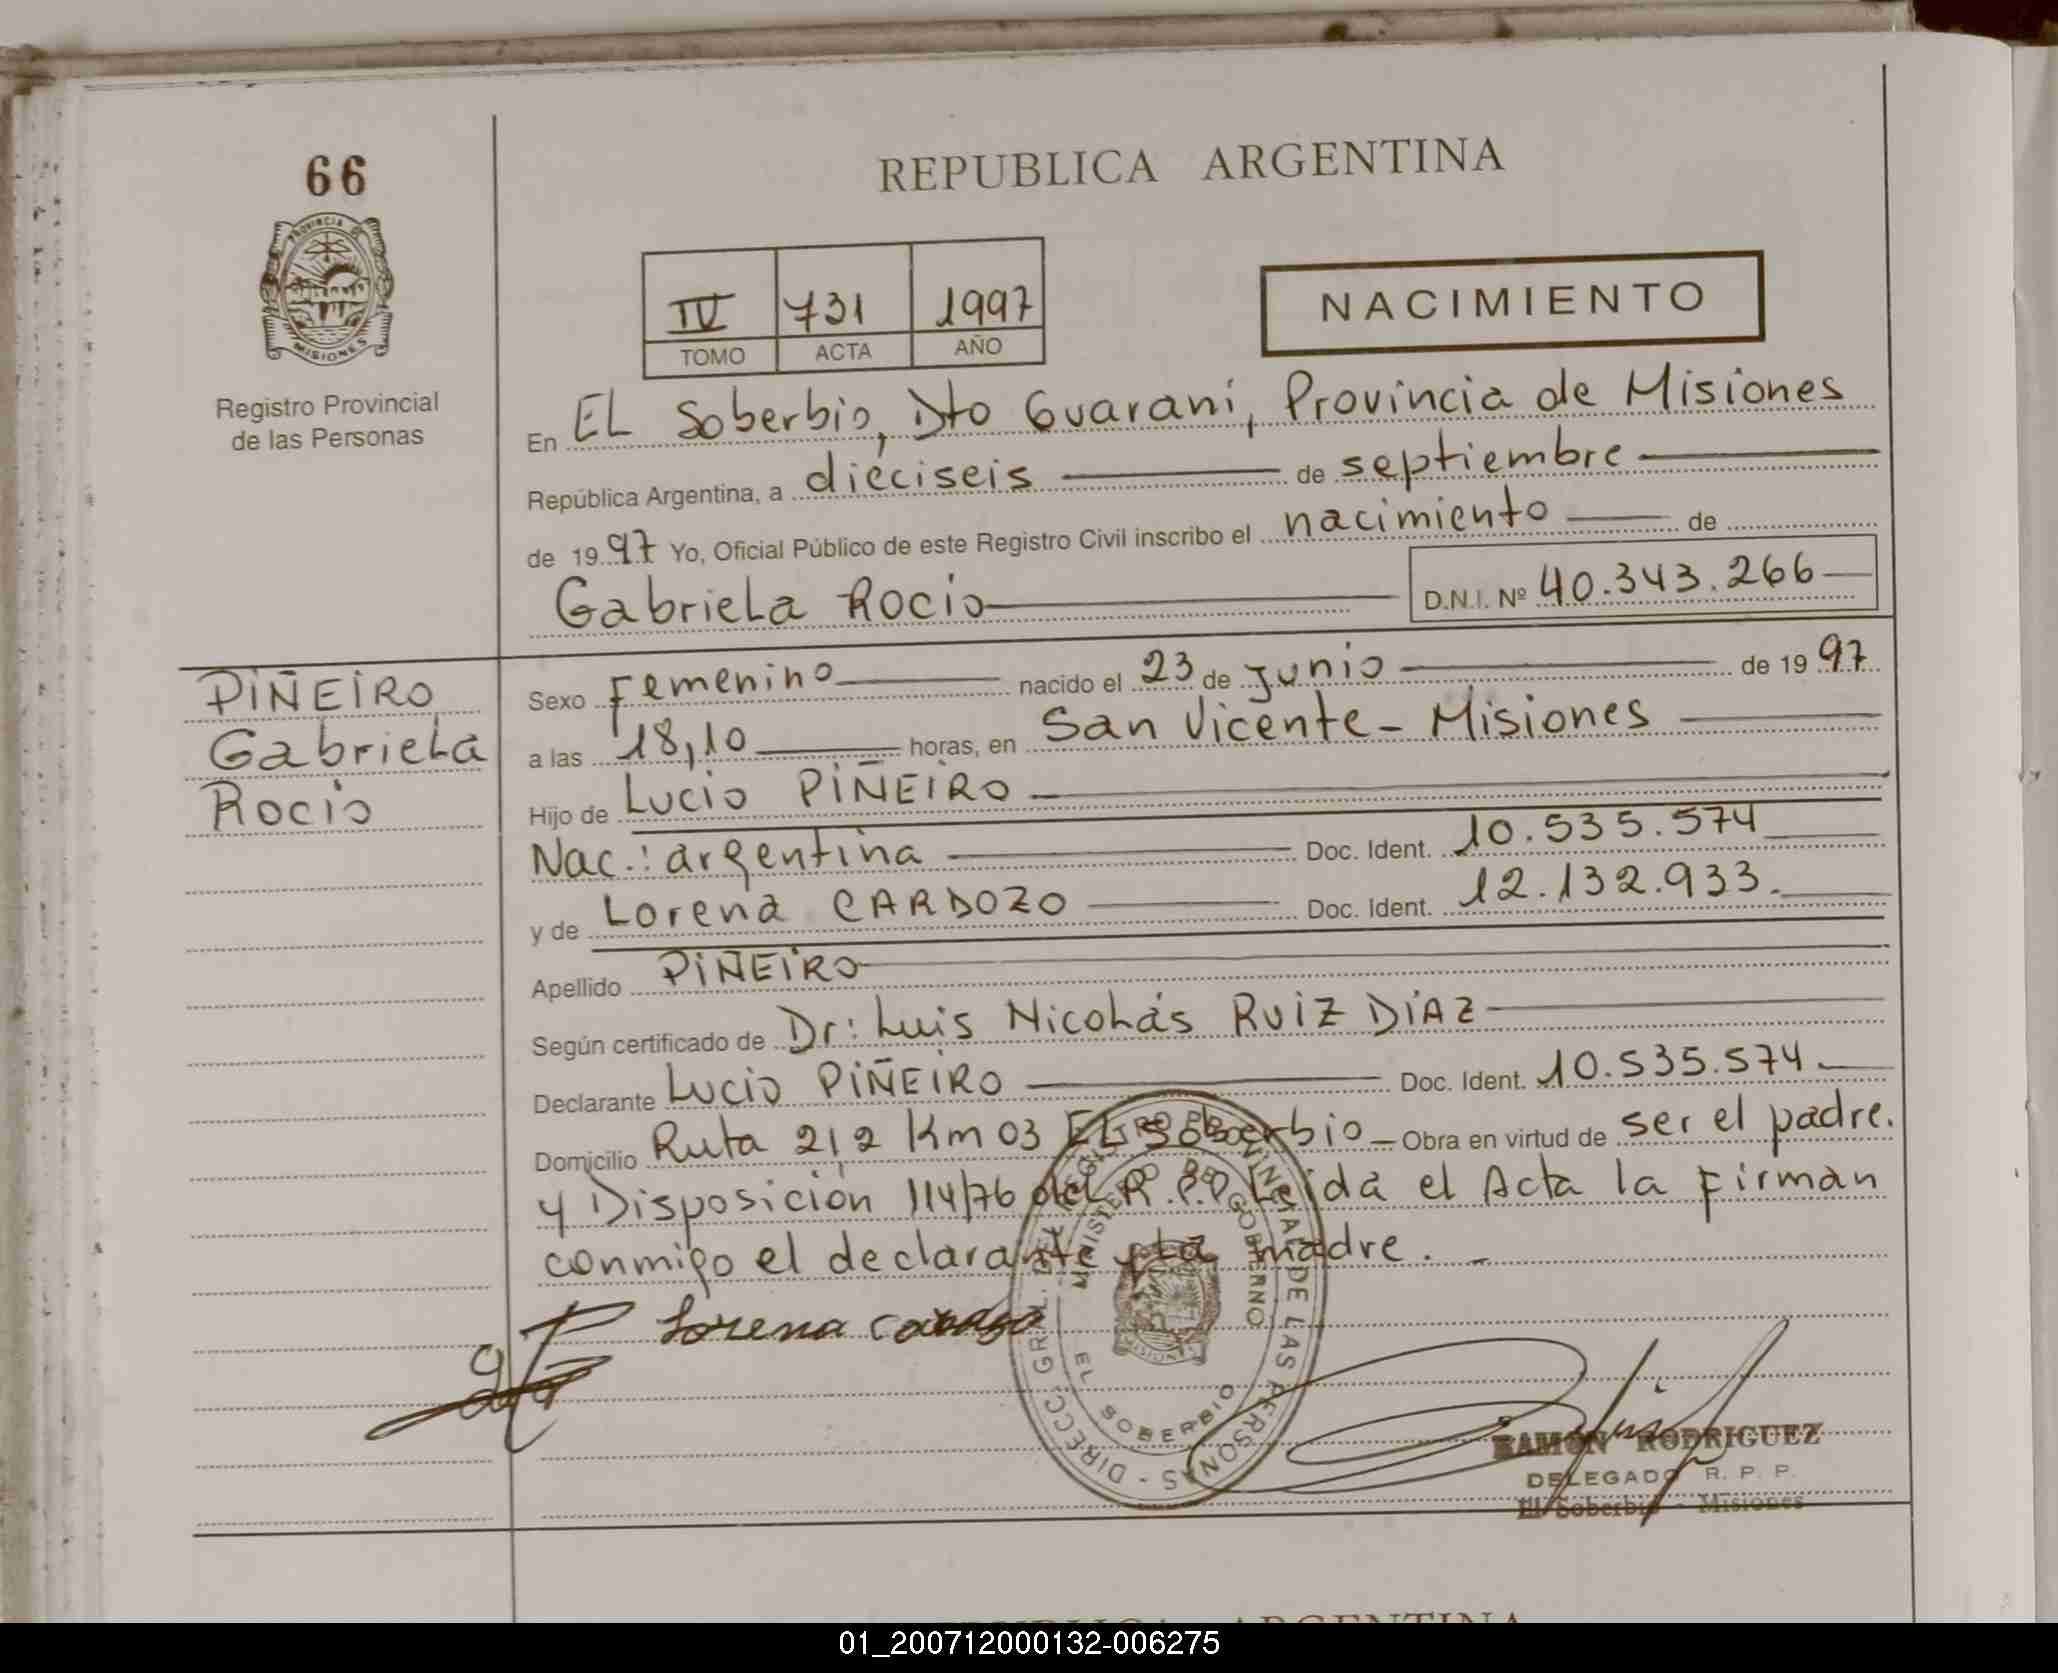 66
PROVINCIA DE
MISIONES
Registro Provincial
de las Personas
REPUBLICA ARGENTINA
IV 731 1997
TOMO ACTA AÑO
NACIMIENTO
En EL Soberbio, Dto Guaraní, Provincia de Misiones
República Argentina, a dieciseis de septiembre
de 1997 Yo, Oficial Público de este Registro Civil inscribo el nacimiento de
Gabriela Rocio D.N.I. Nº 40.343.266
PIÑEIRO
Gabriela
Rocio
Sexo Femenino nacido el 23 de junio de 1997
a las 18,10 horas, en San Vicente - Misiones
Hijo de Lucio PIÑEIRO
Nac.: argentina Doc. Ident. 10.535.574
y de Lorena CARDOZO Doc. Ident. 12.132.933.
Apellido PIÑEIRO
Según certificado de Dr: Luis Nicolás RUIZ DIAZ
Declarante Lucio PIÑEIRO Doc. Ident. 10.535.574
Domicilio Ruta 212 Km 03 EL Soberbio - Obra en virtud de ser el padre.
y Disposición 114/76 del R.P.P Leída el Acta la firman
conmigo el declarante y la madre. -
Lorena Cardozo
DIRECC. GRAL. DEL REGISTRO PROVINCIAL DE LAS PERSONAS -
MINISTERIO DE GOBIERNO
MISIONES
EL SOBERBIO
RAMON RODRIGUEZ
DELEGADO R. P. P.
El Soberbio - Misiones
REPUBLICA ARGENTINA
01_200712000132-006275